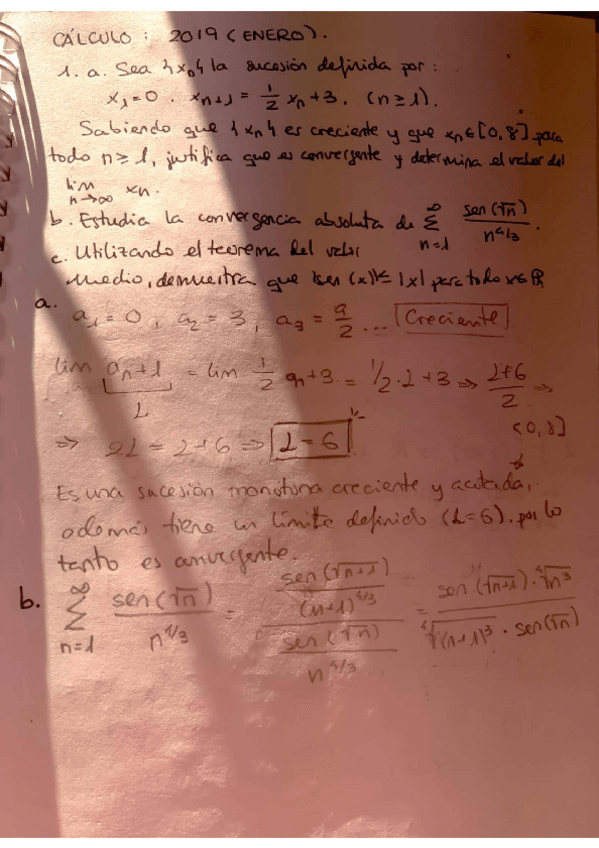 CÁLCULO: 2019 (ENERO).
1. a. Sea {xₙ} la sucesión definida por:
x₁=0. xₙ₊₁ = 1/2 xₙ+3. (n≥1).
Sabiendo que {xₙ} es creciente y que xₙ∈[0,8] para
todo n≥1, justifica que es convergente y determina el valor del
lim n→∞ xₙ.
b. Estudia la convergencia absoluta de ∑ n=1 ∞ sen(√n)/n^4/3.
c. Utilizando el teorema del valor
medio, demuestra que |sen(x)|≤|x| para todo x∈ℝ
a.
a₁=0, a₂=3, a₃=9/2... Creciente
lim aₙ+1 = lim 1/2 aₙ+3 = 1/2·L+3 ⇒ L+6/2 ⇒
L
⇒ 2L = L+6 ⇒ L=6
[0,8]
Es una sucesión monótona creciente y acotada,
además tiene un límite definido (L=6). por lo
tanto es convergente.
b. ∑ n=1 ∞ sen(√n)/n^4/3 = sen(√n+1)/(n+1)^4/3 / sen(√n)/n^4/3 = sen(√n+1)·⁴√n³ / ⁴√(n+1)³·sen(√n)